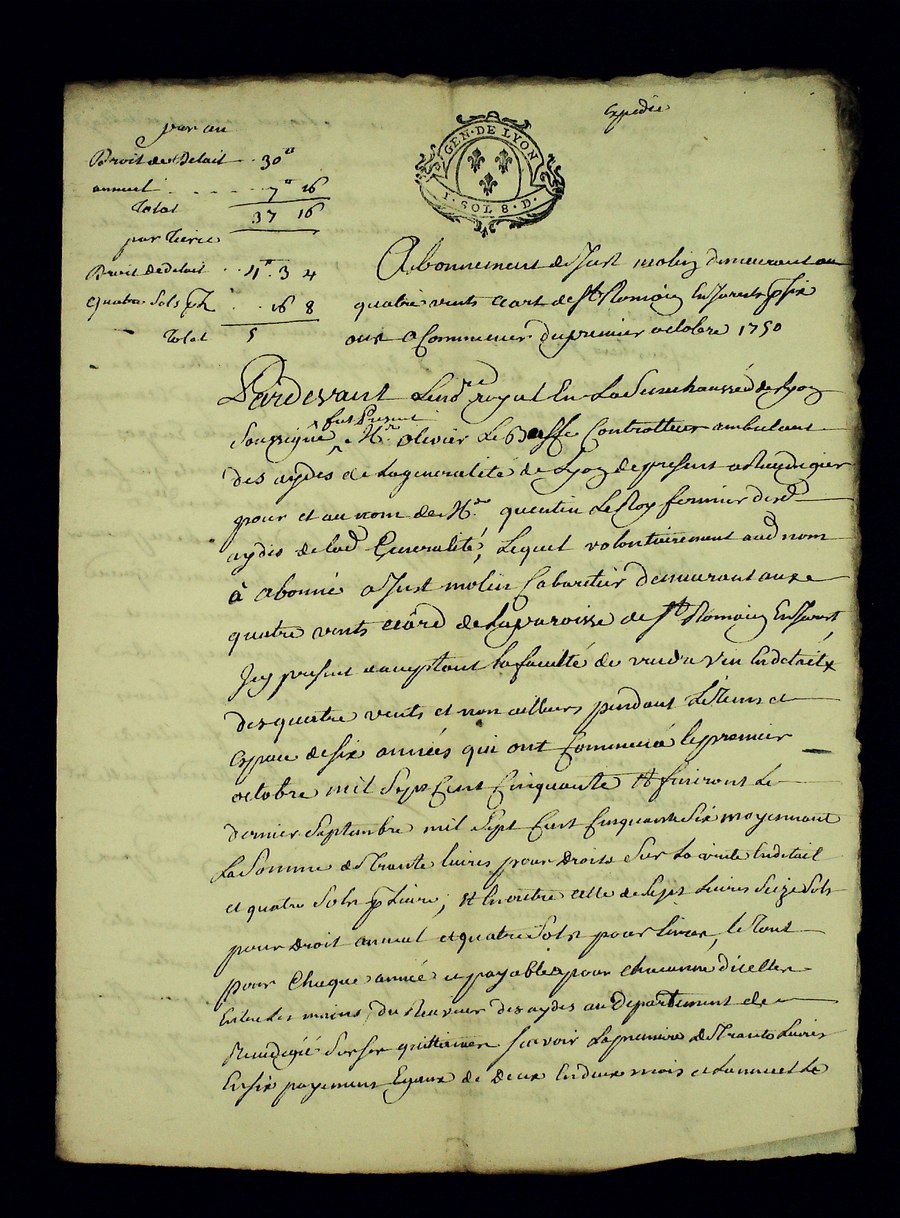 Expédié
par an
Droit de Detail .. 30ᵗᵗ
annuel . . . . . 7ᵗᵗ 16
Total 37 16
par Tierce
Droit de detail .. 4ᵗᵗ. 3 4
quatre sols p. ₶ .. 16 8
Total 5
GEN · DE LYON
1 · SOL 8 · D ·
Abonnement de Just molin demeurant au
quatre vents cart de St Romain En Jarests p. six
ans a Commencer du premier octobre 1750
Pardevant Le no.re royal En La Senechaussée de Lyon
Soussigné fut Present M.re olivier Le Basse Controlleur ambulant
des aydes de La generalité de Lyon de present a
pour et au nom de M.re quentin Le Roy fermier des d.
aydes de lad. Generalité, Lequel volontairement aud. nom
à abonné a Just molin Cabaretier demeurant aux
quatre vents cârd de La paroisse de St Romain En Jarest
Icy present acceptant la faculté de vendre vin En detail
des quatre vents et non ailleurs pendant Le Tems et
Espace de six années qui ont Commencé le premier
octobre mil Sept Cent Cinquante et finiront Le
dernier Septembre mil Sept Cent Cinquante Six moyennant
La Somme de Trante livres pour droits Sur La vente En detail
et quatre Sols p. Livre, et En outre celle de Sept Livres Seize Sols
pour Droit annuel et quatre Sols pour livre, le Tout
pour Chaque année et payables pour chacune d'icelles
Entre Les mains du Receveur des aydes au Departement de
Sur ses quittances Scavoir La premiere de Trante Livres
En six payements Egaux de deux En deux mois et L'annuel Le